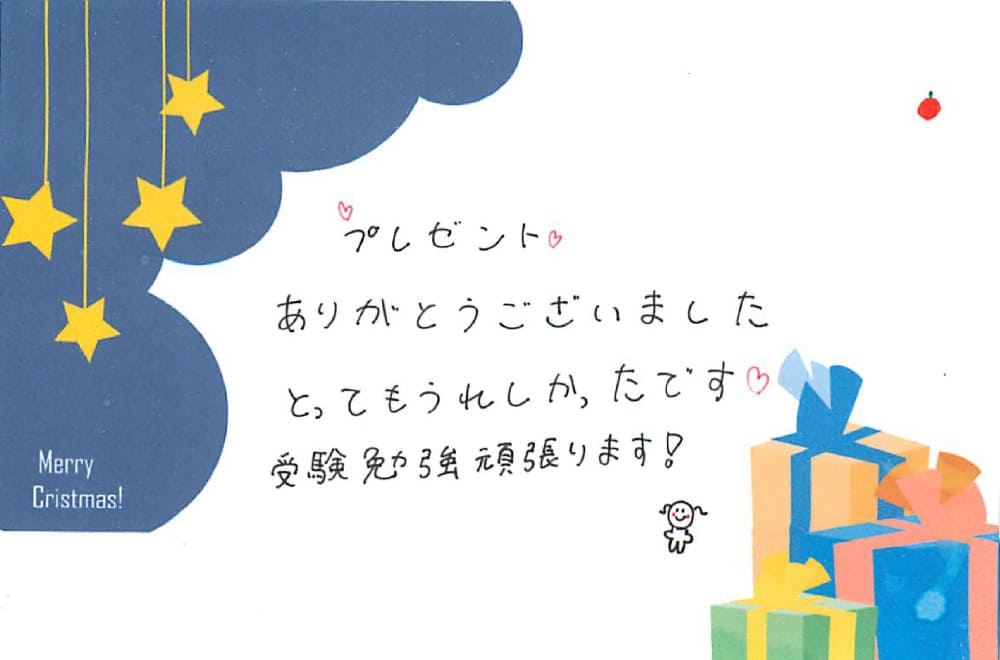 プレゼント
ありがとうございました
とってもうれしかったです
受験勉強頑張ります!
Merry
Cristmas!